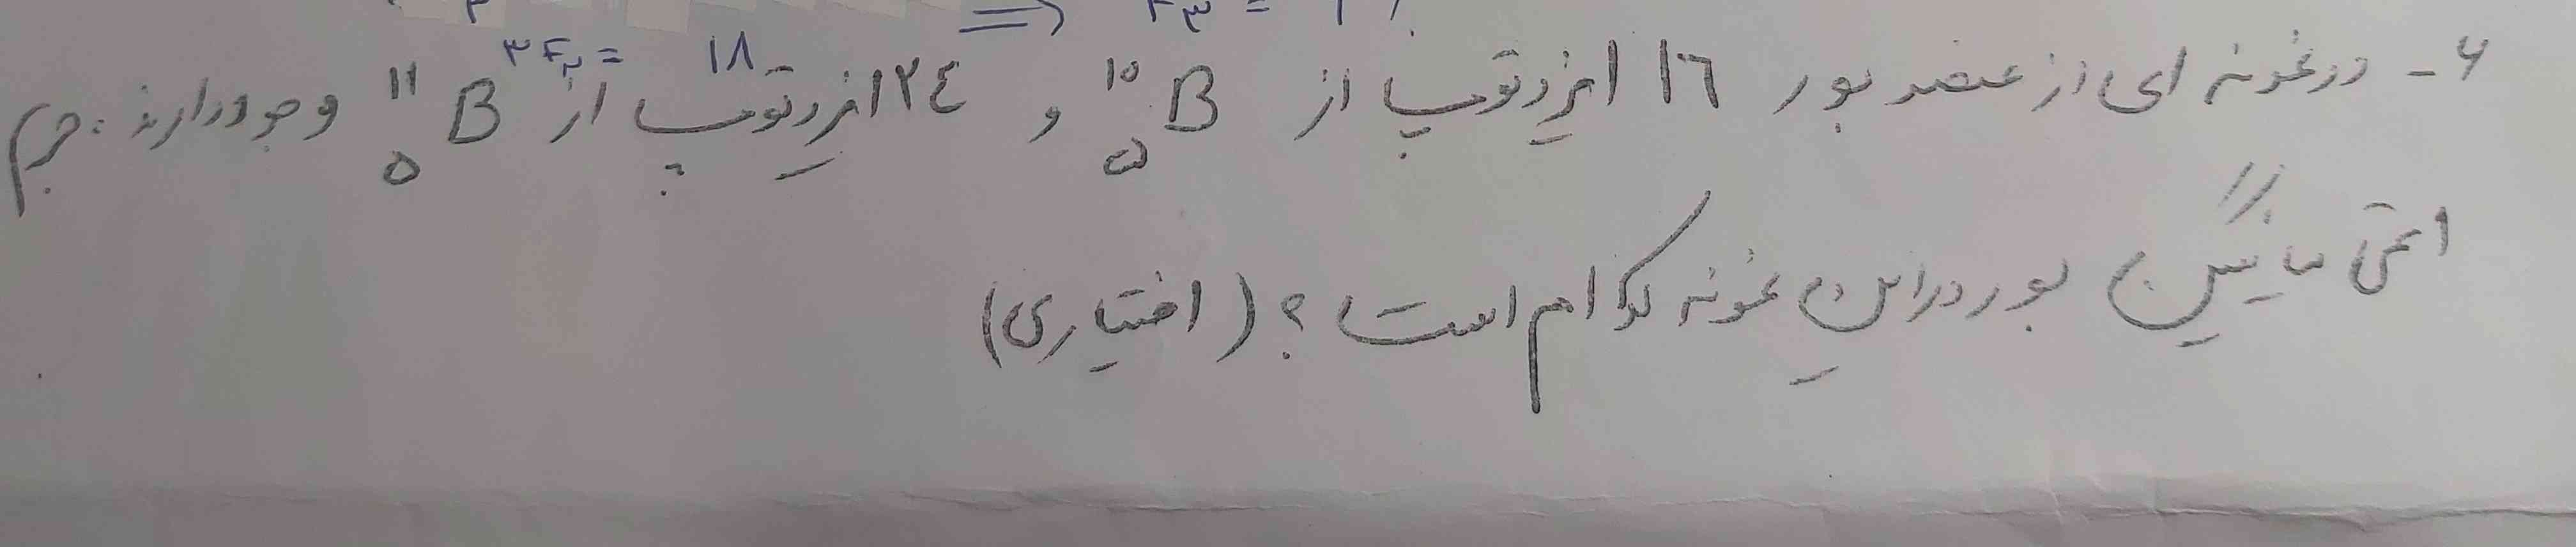 ۳F۲ = ۱۸
۶- در نمونه ای از عنصر بور ۱٦ ایزوتوپ از ۱۰ ۵ B و ۲٤ ایزوتوپ از ۱۱ ۵ B وجود دارند، جرم
اتمی میانگین بور در این نمونه کدام است؟ (اختیاری)